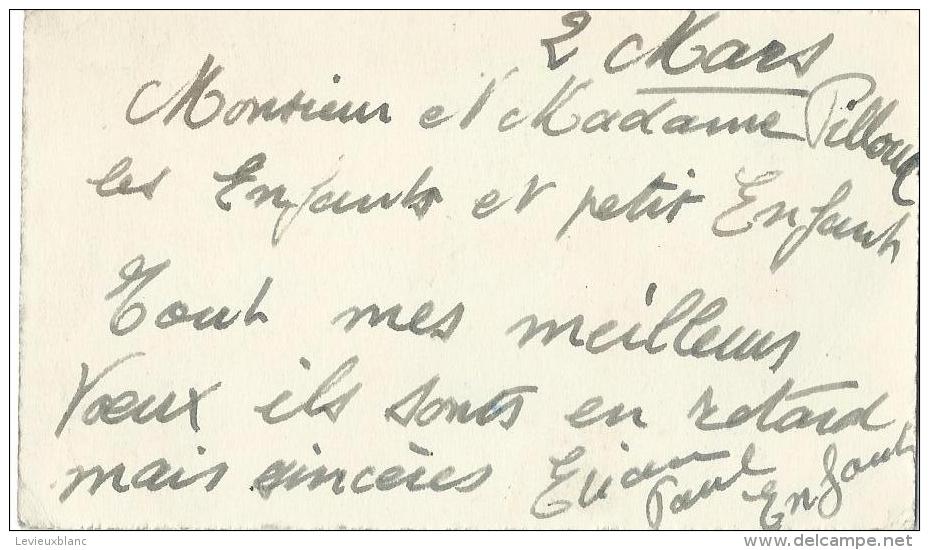 2 Mars
Monsieur et Madame Pilloux
les Enfants et petit Enfants
Tout mes meilleurs
Vœux ils sonts en retard
mais sincères Paul Enfants
Levieuxblanc
www.delcampe.net